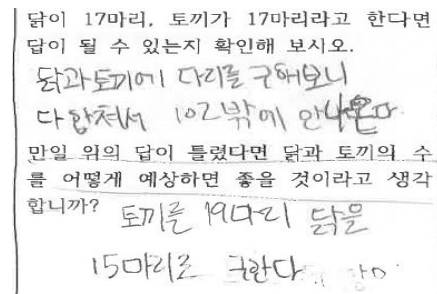 닭이 17마리, 토끼가 17마리라고 한다면
답이 될 수 있는지 확인해 보시오.
닭과토끼에 다리를 구해보니
다합쳐서 102밖에 안나온다
만일 위의 답이 틀렸다면 닭과 토끼의 수
를 어떻게 예상하면 좋을 것이라고 생각
합니까?
토끼를 19마리 닭을
15마리로 구한다